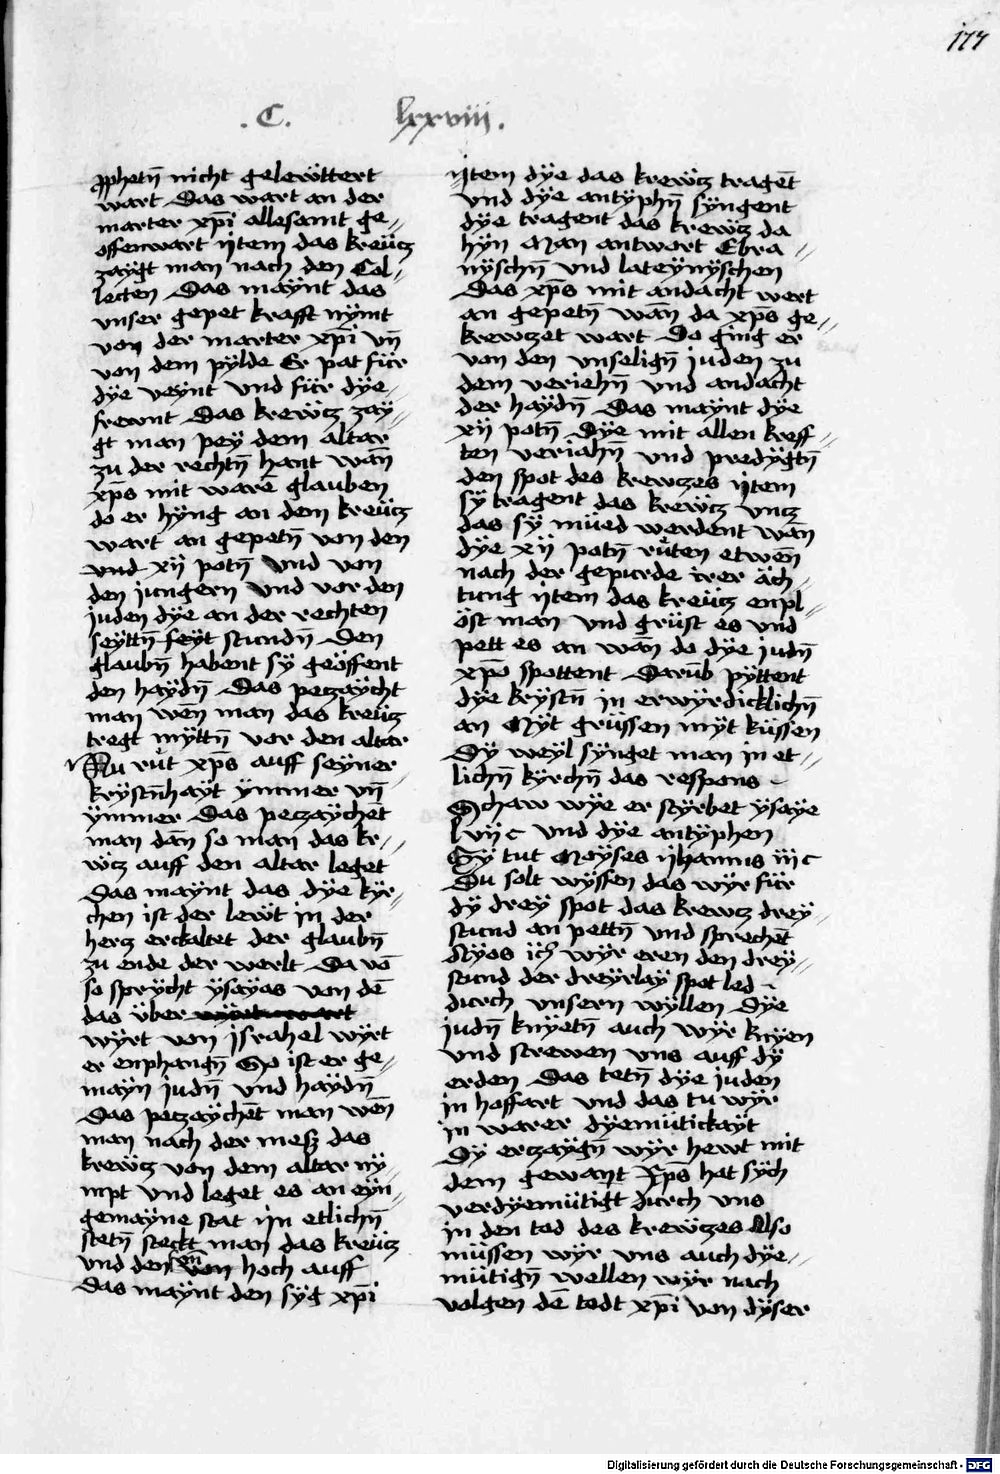 177
.C. lxxviii.
ꝓphetn̄ nicht gelewttert
wart Das wart an der
marter xp̄i allesamt ge⸗
offenwart ijtem das kreücz
zaÿgt man nach den Col⸗
lecten Das maÿnt das
unser gepet krafft nÿmt
von der marter xp̄i vn̄
von dem pylde Er pat für
dÿe veÿnt und für dÿe⸗
frewnt Das krewcz zaÿ⸗
gt man peÿ dem altar
zu der rechtn̄ hant wan̄
xp̄s mit warē glauben
do er hÿng an dem kreücz
wart an gepetn̄ von den
und xij potn̄ und von
den jungern und vor den
juden dÿe an der rechten
seÿttn̄ seÿt stundn̄ Den
glaubn̄ habent sÿ geöffent
den haÿdn̄ Das peczaÿcht
man wen̄ man das kreücz
tregt mÿttn̄ vor den altar
Nu růt xp̄s auff seÿner
krÿstn̄haÿt ÿmmer vn̄
ÿmmer Das peczaÿchēt
man dan̄ so man das kr⸗
wcz auff den altar leget
Das maÿnt das dÿe kÿr⸗
chen ist der lewt in der
hercz erckaltet der glaubn̄
zu ende der werlt Da vō
so sprÿcht ÿsaÿas von dē
das über
wÿrt von jsrahel wÿrt
er enphangn̄ So ist er ge⸗
maÿn judn̄ und haÿdn̄
Das peczaÿchēt man wen̄
man nach der mesz das
krewcz von dem altar nÿ⸗
mpt und leget es an eÿn⸗
gemaÿne stat jn etlichn̄
stetn̄ steckt man das kreücz
und den von hoch auff
Das maÿnt den sÿg xp̄i
ijtem dÿe das krewcz tragēt
und dÿe antÿphn̄ sÿngent
dÿe tragent das krewcz da
hÿn Man antwart Ebra⸗
nÿschn̄ und lateÿnÿschen
Das xp̄s mit andacht wert
an gepetn̄ wan̄ da xp̄s ge⸗
krewczet wart Do ging er
von den unselign̄ juden zu
dem veriehn̄ und andacht
der haÿdn̄ Das maÿnt dÿe
xij potn̄ Dÿe mit allen kreff⸗
ten veriahn̄ und predÿgtn̄
den spot des krewczes ijtem
sÿ tragent das krewcz uncz
das sÿ müed werdent wan̄
dÿe xij potn̄ růten etwen̄
nach der gepurde irer äch⸗
tung ijtem das kreücz enpl⸗
öst man und grüst es und
pett es an wan̄ do dÿe judn̄
xp̄o spottent Darūb pÿttent
dÿe krÿstn̄ in erwÿrdicklichn̄
an Mÿt grüssen mÿt küssen
Dÿ weÿl sÿnget man in et⸗
lichn̄ kÿrchn̄ das respons
Schaw wÿe er stÿrbet ÿsaÿe
lvij c und dÿe antÿphen
Sÿ tut Moÿses ijhannis iij c
Du solt wÿssen das wÿr für
dÿ dreÿ spot das krewcz dreÿ⸗
stund an pettn̄ und sprechēt
Aÿos ich wÿr eren den dreÿ⸗
stund der dreÿrlaÿ spot led
durch unsern wÿllen Dÿe
judn̄ knÿetn̄ auch wÿr knÿen
und strewen uns auff dÿ
erden Das tetn̄ dÿe juden
in hoffart und das tu wÿr
in warer dÿemütickaÿt
Dÿ erczaÿgn̄ wÿr hewt mit
dem gewant xp̄s hat sÿch
verdÿemütigt durch uns
in den tod des krewczes Also
müssen wÿr uns auch dÿe⸗
mütign̄ wellen wÿr nach
volgen dē todt xp̄i von dÿser
Digitalisierung gefördert durch die Deutsche Forschungsgemeinschaft - DFG